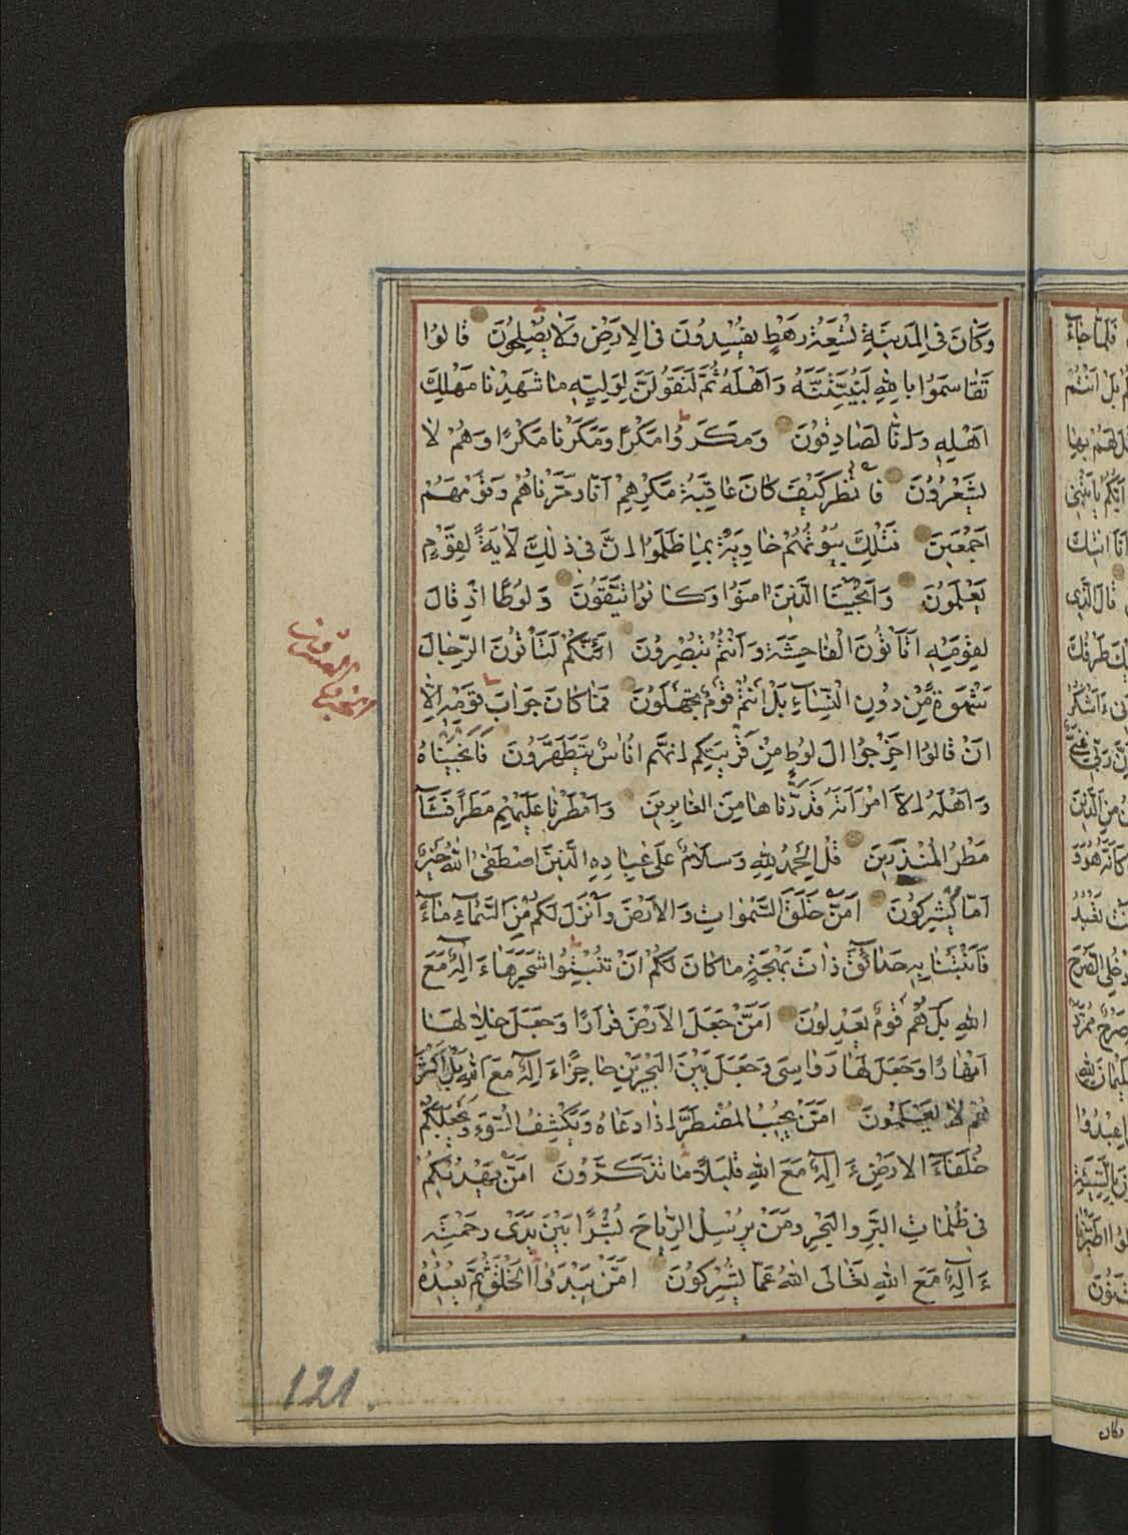 وَكَانَ فِى الْمَدينَةِ تِسْعَةُ رَهْطٍ يُفْسِدُونَ فِى الْاَرْضِ وَلَا يُصْلِحُونَ قَالُوا
تَقَاسَمُوا بِاللهِ لَنُبَيِّتَنَّهُ وَاَهْلَهُ ثُمَّ لَنَقُولَنَّ لِوَلِيِّهِ مَا شَهِدْنَا مَهْلِكَ
اَهْلِهِ وَاِنَّا لَصَادِقُونَ وَمَكَرُوا مَكْرًا وَمَكَرْنَا مَكْرًا وَهُمْ لَا
يَشْعُرُونَ فَانْظُرْ كَيْفَ كَانَ عَاقِبَةُ مَكْرِهِمْ اَنَّا دَمَّرْنَاهُمْ وَقَوْمَهُمْ
اَجْمَعينَ فَتِلْكَ بُيُوتُهُمْ خَاوِيَةً بِمَا ظَلَمُوا اِنَّ فى ذٰلِكَ لَاٰيَةً لِقَوْمٍ
يَعْلَمُونَ وَاَنْجَيْنَا الَّذينَ اٰمَنُوا وَكَانُوا يَتَّقُونَ وَلُوطًا اِذْ قَالَ
لِقَوْمِهِ اَتَأْتُونَ الْفَاحِشَةَ وَاَنْتُمْ تُبْصِرُونَ اَئِنَّكُمْ لَتَأْتُونَ الرِّجَالَ
شَهْوَةً مِنْ دُونِ النِّسَاءِ بَلْ اَنْتُمْ قَوْمٌ تَجْهَلُونَ فَمَا كَانَ جَوَابَ قَوْمِهِ اِلَّا
اَنْ قَالُوا اَخْرِجُوا اٰلَ لُوطٍ مِنْ قَرْيَتِكُمْ اِنَّهُمْ اُنَاسٌ يَتَطَهَّرُونَ فَاَنْجَيْنَاهُ
وَاَهْلَهُ اِلَّا امْرَاَتَهُ قَدَّرْنَاهَا مِنَ الْغَابِرينَ وَاَمْطَرْنَا عَلَيْهِمْ مَطَرًا فَسَاءَ
مَطَرُ الْمُنْذَرينَ قُلِ الْحَمْدُ لِلهِ وَسَلَامٌ عَلٰى عِبَادِهِ الَّذينَ اصْطَفٰى اٰللهُ خَيْرٌ
اَمَّا يُشْرِكُونَ اَمَّنْ خَلَقَ السَّمٰوَاتِ وَالْاَرْضَ وَاَنْزَلَ لَكُمْ مِنَ السَّمَاءِ مَاءً
فَاَنْبَتْنَا بِهِ حَدَائِقَ ذَاتَ بَهْجَةٍ مَا كَانَ لَكُمْ اَنْ تُنْبِتُوا شَجَرَهَا ءَاِلٰهٌ مَعَ
اللهِ بَلْ هُمْ قَوْمٌ يَعْدِلُونَ اَمَّنْ جَعَلَ الْاَرْضَ قَرَارًا وَجَعَلَ خِلَالَهَا
اَنْهَارًا وَجَعَلَ لَهَا رَوَاسِىَ وَجَعَلَ بَيْنَ الْبَحْرَيْنِ حَاجِزًا ءَاِلٰهٌ مَعَ اللهِ بَلْ اَكْثَرُ
هُمْ لَا يَعْلَمُونَ اَمَّنْ يُجيبُ الْمُضْطَرَّ اِذَا دَعَاهُ وَيَكْشِفُ السُّوءَ وَيَجْعَلُكُمْ
خُلَفَاءَ الْاَرْضِ ءَاِلٰهٌ مَعَ اللهِ قَليلًا مَا تَذَكَّرُونَ اَمَّنْ يَهْديكُمْ
فى ظُلُمَاتِ الْبَرِّ وَالْبَحْرِ وَمَنْ يُرْسِلُ الرِّيَاحَ بُشْرًا بَيْنَ يَدَىْ رَحْمَتِهِ
ءَاِلٰهٌ مَعَ اللهِ تَعَالَى اللهُ عَمَّا يُشْرِكُونَ اَمَّنْ يَبْدَؤُا الْخَلْقَ ثُمَّ يُعيدُهُ
121.